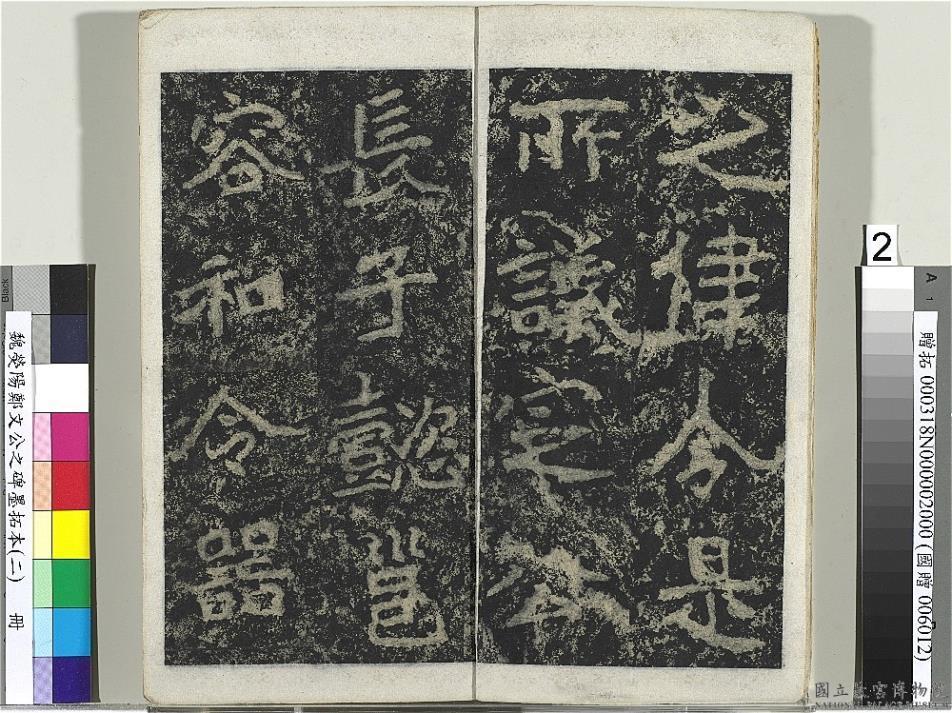 之律令是
所議定
長子懿邕
容和令器
魏滎陽鄭文公之碑墨拓本(二) 冊
贈拓 000318N000002000 (國贈 006012)
2
A
1
Black
國立故宮博物院
NATIONAL PALACE MUSEUM